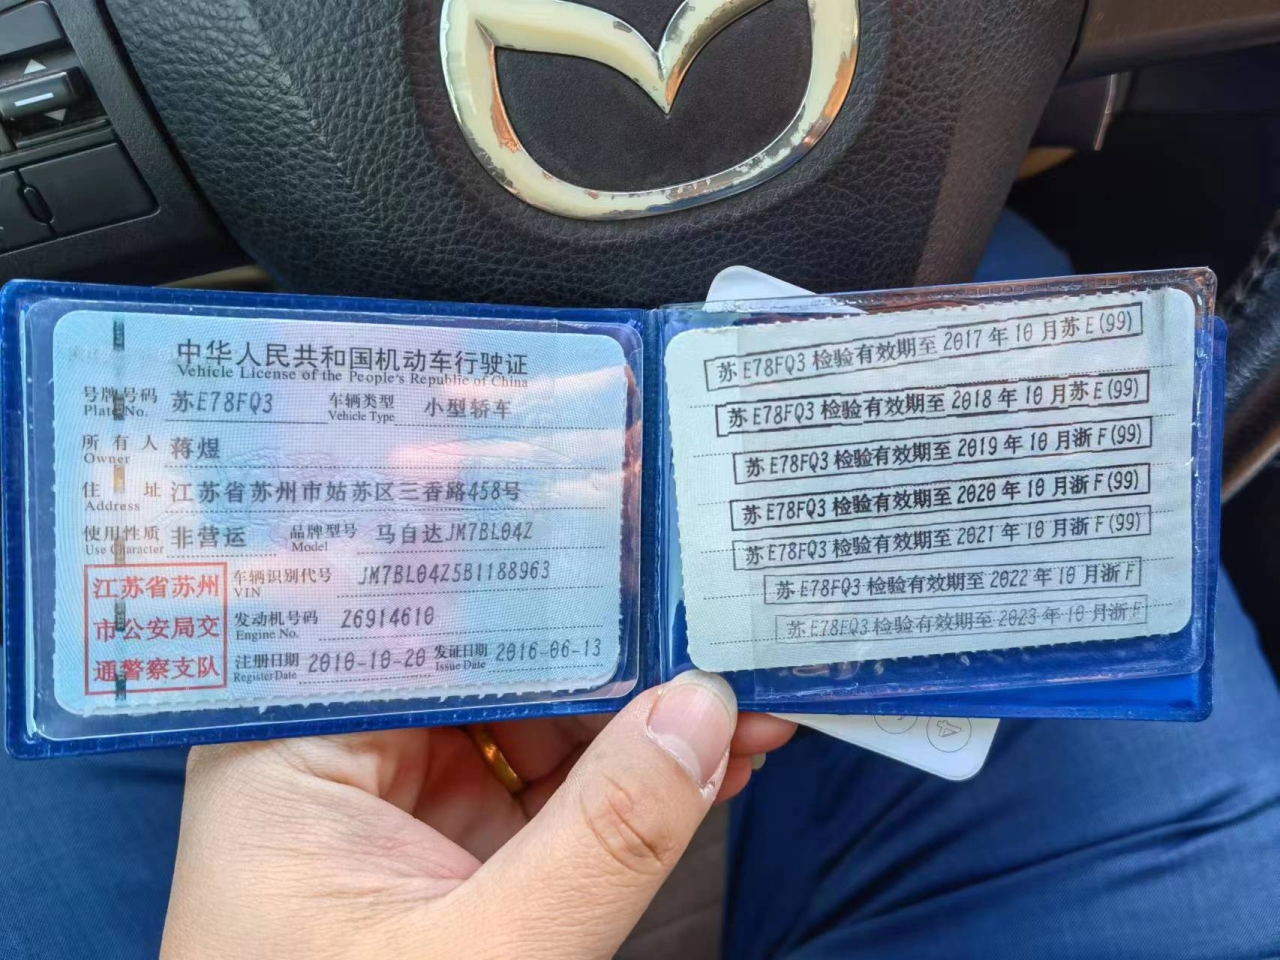 中华人民共和国机动车行驶证
Vehicle License of the People's Republic of China
号牌号码 苏E78FQ3 车辆类型 小型轿车
Plate No. Vehicle Type
所有人 蒋煜
Owner
住址 江苏省苏州市姑苏区三香路458号
Address
使用性质 非营运 品牌型号 马自达JM7BL04Z
Use Character Model
江苏省苏州
市公安局交
通警察支队
车辆识别代号 JM7BL04Z5B1188963
VIN
发动机号码 Z6914610
Engine No.
注册日期 2010-10-20 发证日期 2016-06-13
Register Date Issue Date
苏E78FQ3检验有效期至2017年10月苏E(99)
苏E78FQ3检验有效期至2018年10月苏E(99)
苏E78FQ3检验有效期至2019年10月浙F(99)
苏E78FQ3检验有效期至2020年10月浙F(99)
苏E78FQ3检验有效期至2021年10月浙F(99)
苏E78FQ3检验有效期至2022年10月浙F
苏E78FQ3检验有效期至2023年10月浙F